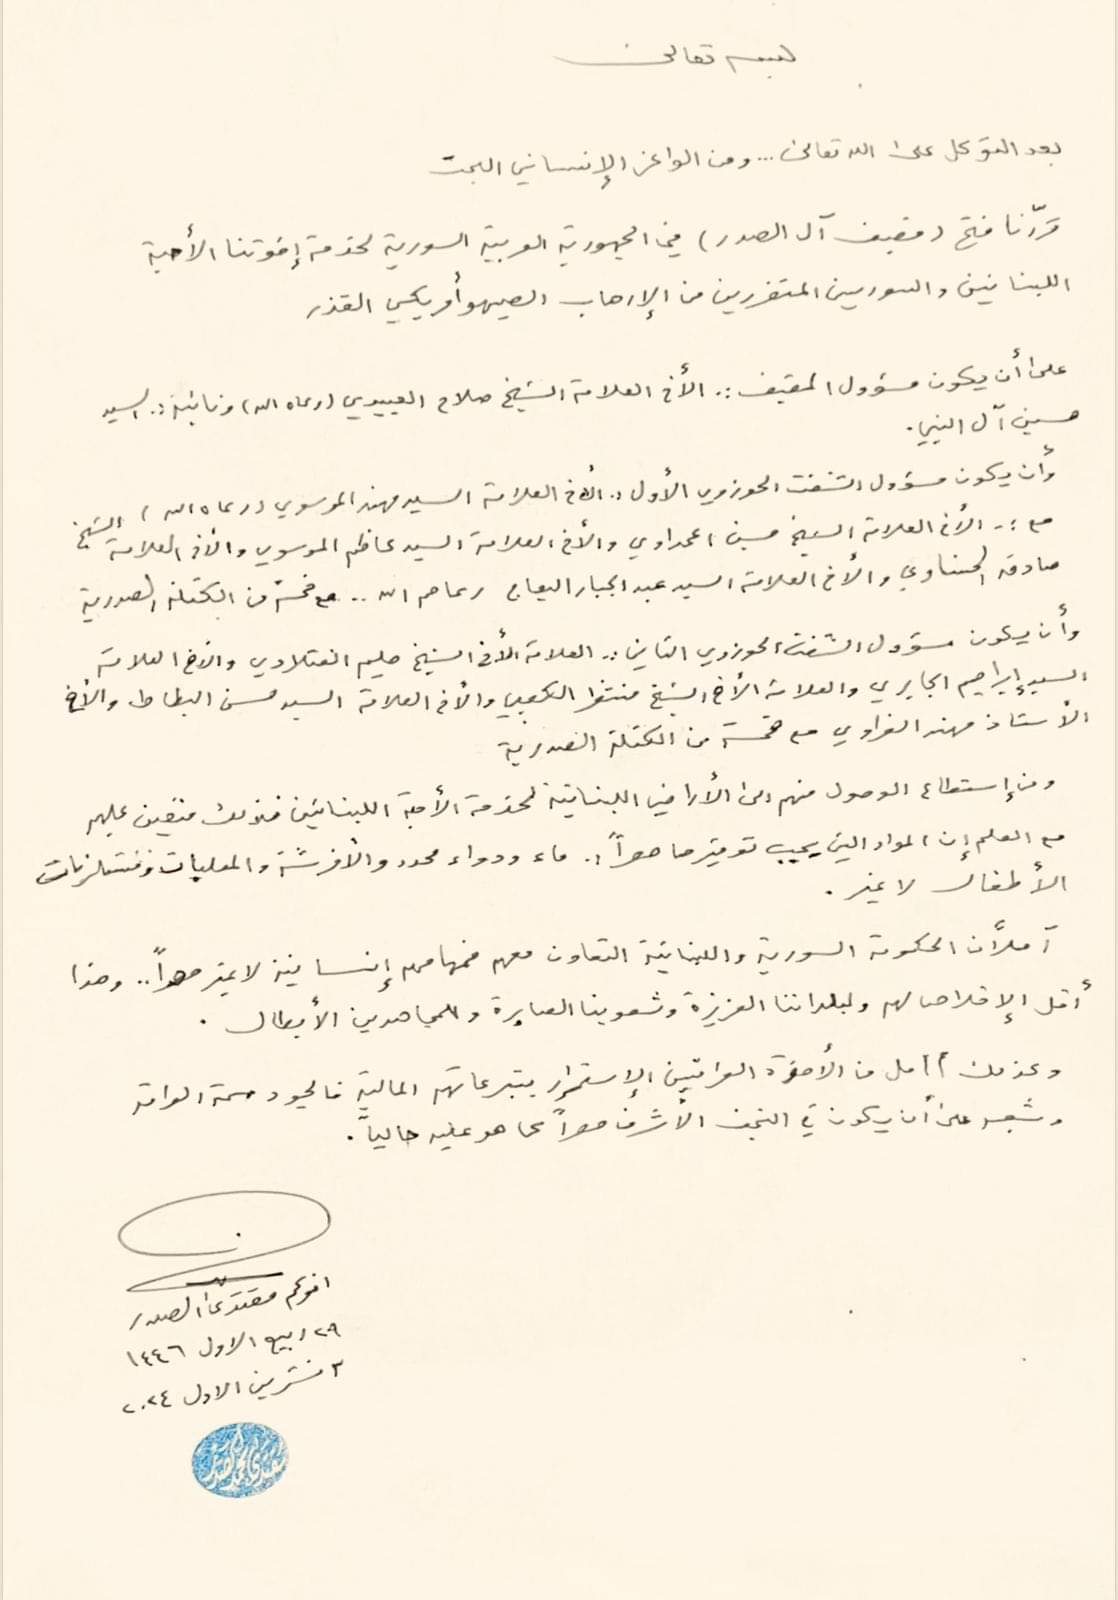 بسمه تعالى
بعد التوكل على الله تعالى... ومن الواعز الإنساني البحت
قرّرنا فتح (مضيف آل الصدر) في الجمهورية العربية السورية لخدمة إخوتنا الأحبة
اللبنانيين والسوريين المتضررين من الإرهاب الصهيوأمريكي القذر
على أن يكون مسؤول المضيف :. الأخ العلامة الشيخ صلاح العبيدي (رعاه الله) ونائبه :. السيد
حسين آل النبي.
وأن يكون مسؤول الشفت الحوزوي الأول :. الأخ العلامة السيد مهند الموسوي (رعاه الله)
مع :. الأخ العلامة الشيخ حسين المحمداوي والأخ العلامة السيد كاظم الموسوي والأخ العلامة الشيخ
صادق الحسناوي والأخ العلامة السيد عبد الجبار البعاج رعاهم الله .. مع خمسة من الكتلة الصدرية
وأن يكون مسؤول الشفت الحوزوي الثاني :. العلامة الأخ الشيخ حليم الفتلاوي والأخ العلامة
السيد إبراهيم الجابري والعلامة الأخ الشيخ منتظر الكعبي والأخ العلامة السيد حسن البطاط والأخ
الأستاذ مهند الغراوي مع خمسة من الكتلة الصدرية
ومن إستطاع الوصول منهم الى الأراضي اللبنانية لخدمة الأحبة اللبنانيين فذلك متعين عليهم
مع العلم إن المواد التي يجب توفيرها حصراً :. ماء ودواء محدد والأفرشة والمعلبات ومستلزمات
الأطفال لا غير .
آملاً من الحكومة السورية واللبنانية التعاون معهم فمهامهم إنسانية لا غير حصراً .. وهذا
أقل الإخلاص لهم ولبلداننا العزيزة وشعوبنا الصابرة والمجاهدين الأبطال .
وعذلك آمل من الأخوة العراقيين الإستمرار بتبرعاتهم المالية فالجود سمة العراق
وشعبه على أن يكون في النجف الأشرف حصراً كما هو عليه حالياً .
اخوكم مقتدى الصدر
٢٩ ربيع الاول ١٤٤٦
٣ تشرين الاول ٢٠٢٤